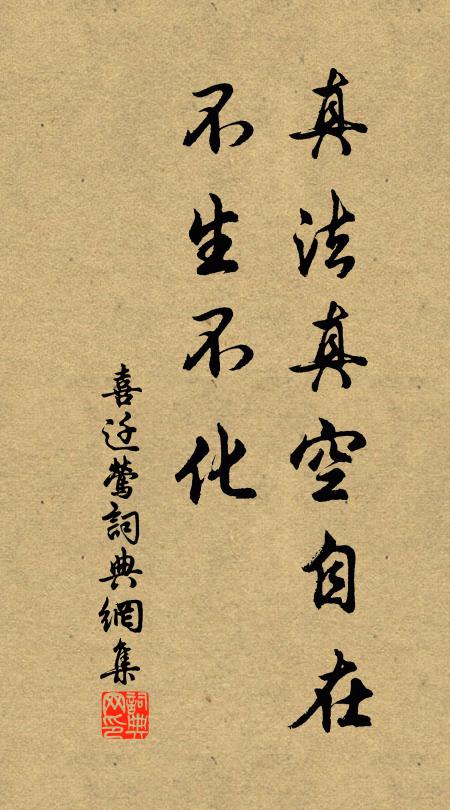 真法真空自在
不生不化
喜迁莺詞典網集
詞典
网印